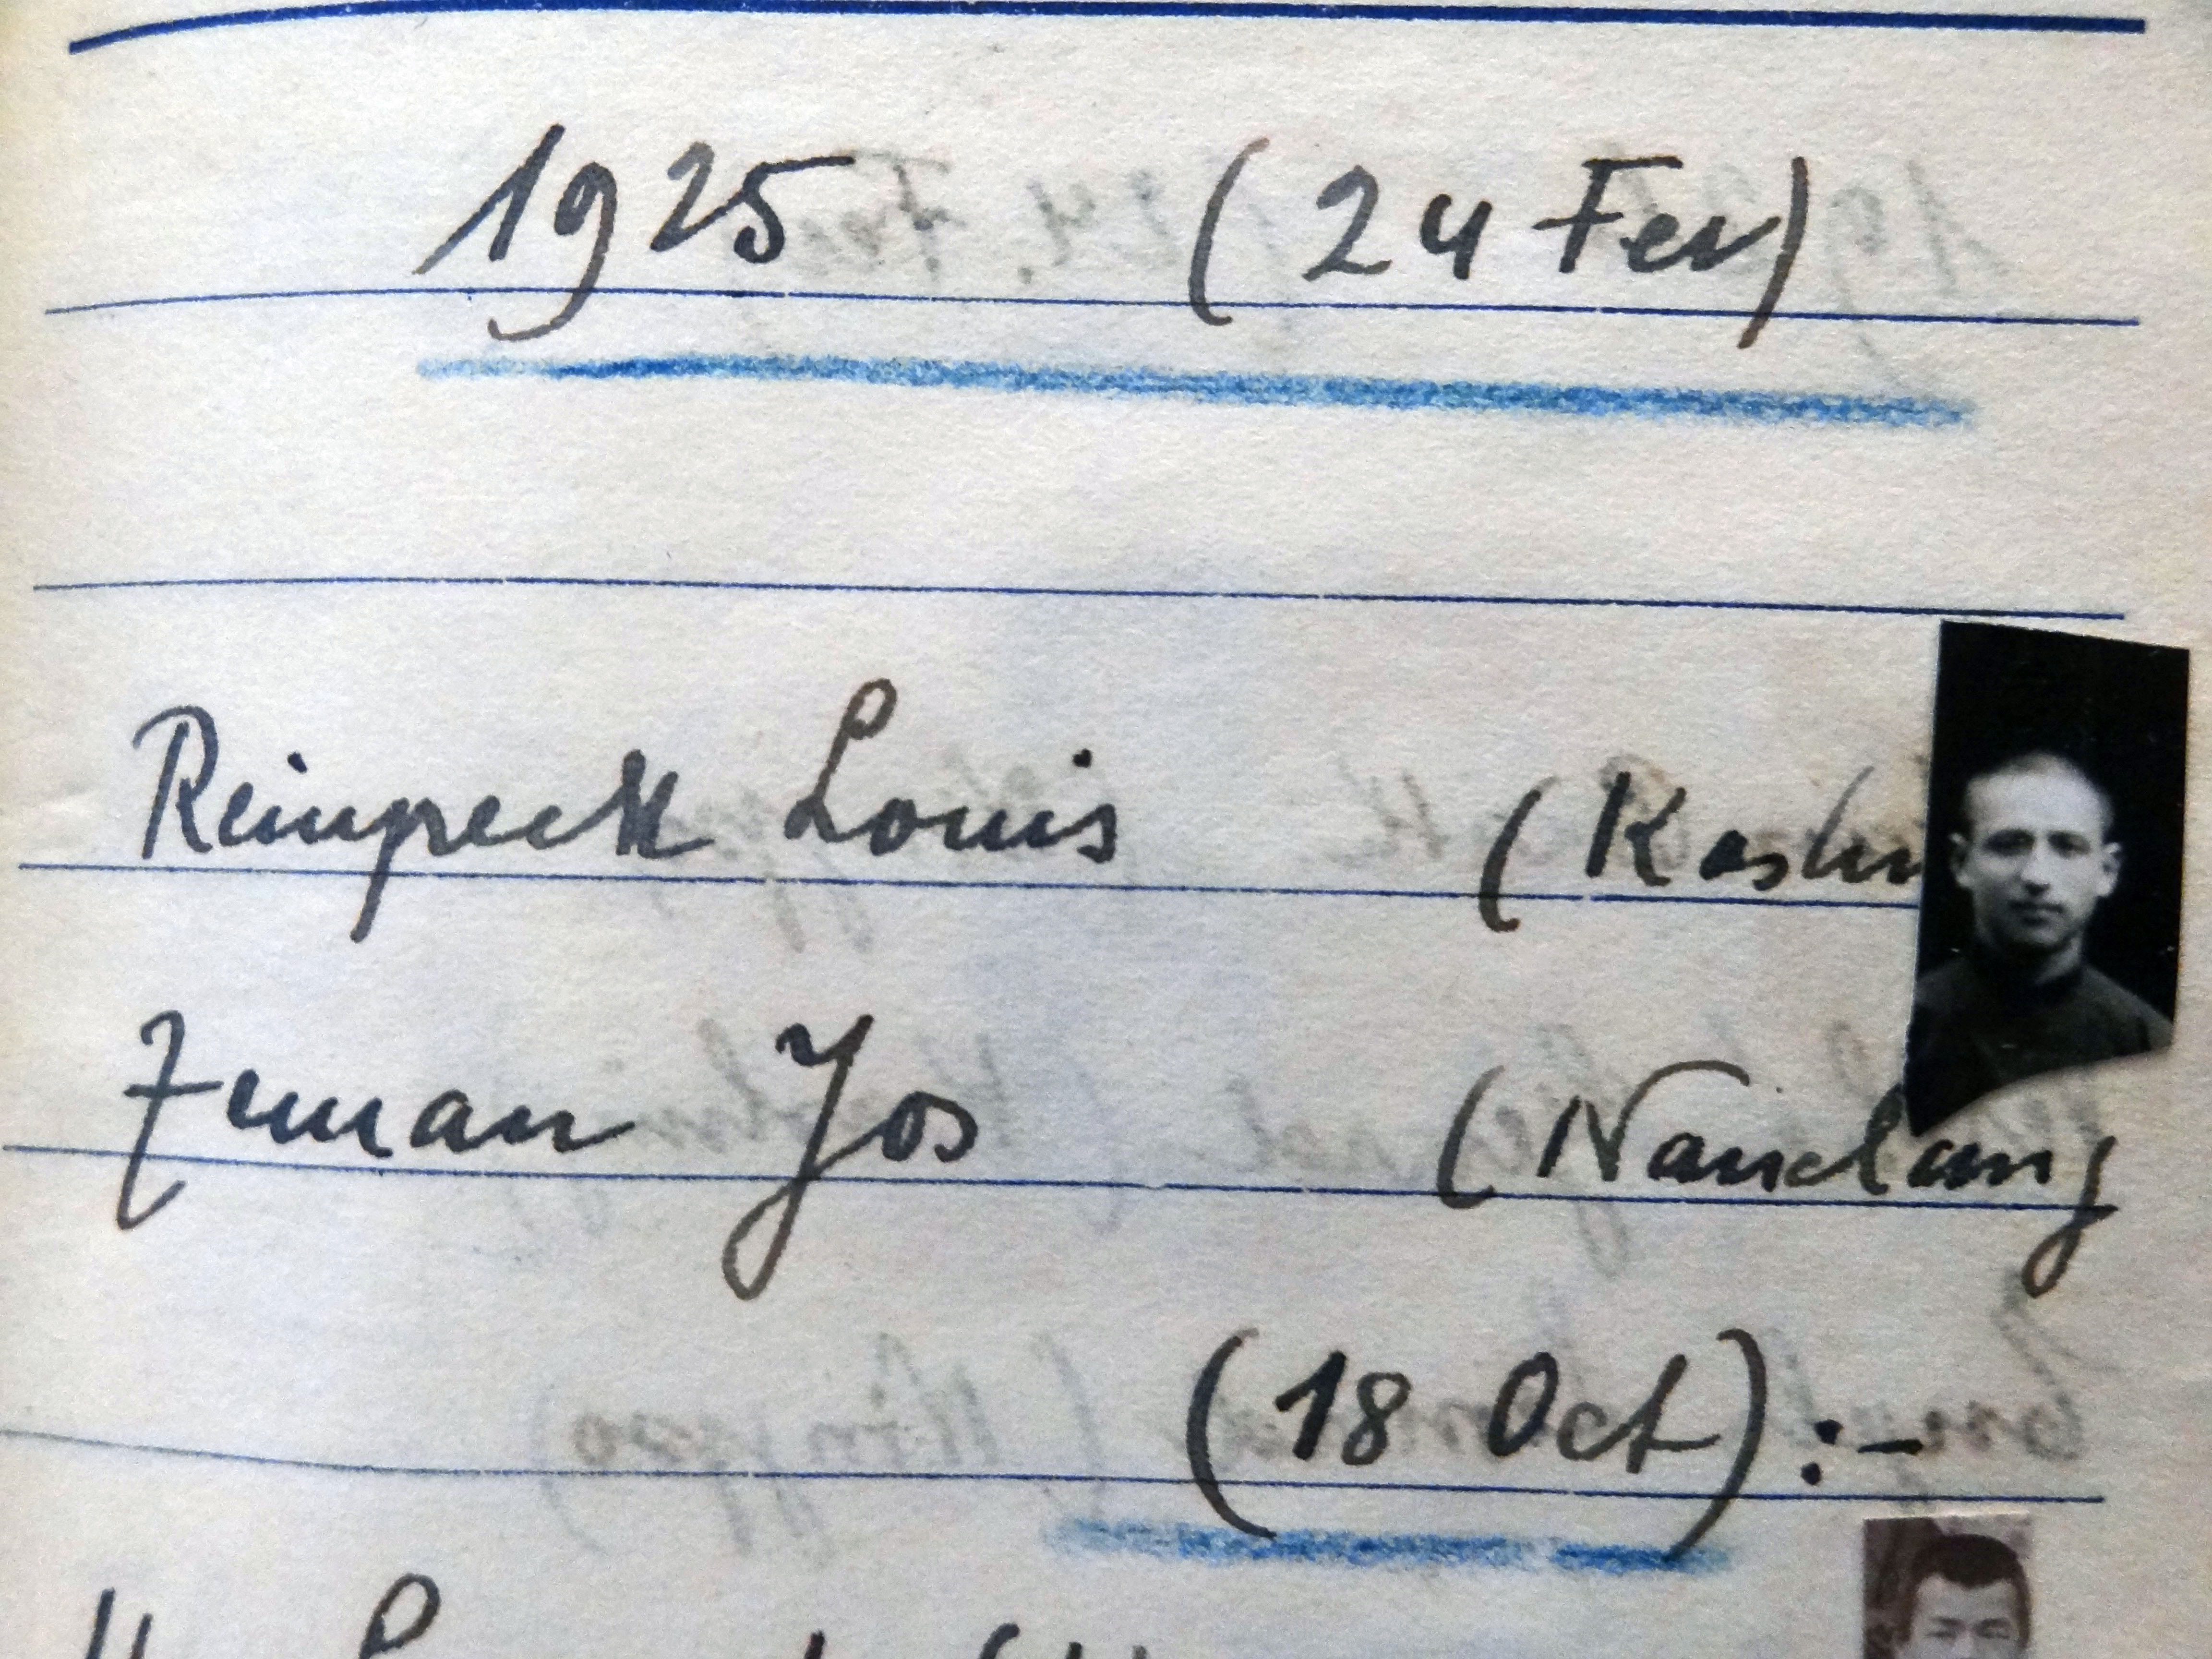 1925 (24 Fev)
Reinpreck Louis (Kashi
Zeman Jos (Nanchang
(18 Oct) :-